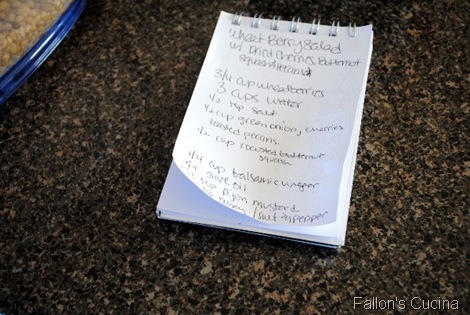 Wheat Berry Salad
w/ Dried Cherries, Butternut
Squash & Pecans
3/4 cup wheatberries
3 cups water
1/2 tsp salt
1/2 cup green onion, cherries
toasted pecans.
1/2 cup roasted butternut
squash
1/4 cup balsamic vinegar
olive oil
tsp Dijon mustard
honey / salt & pepper
Fallon's Cucina